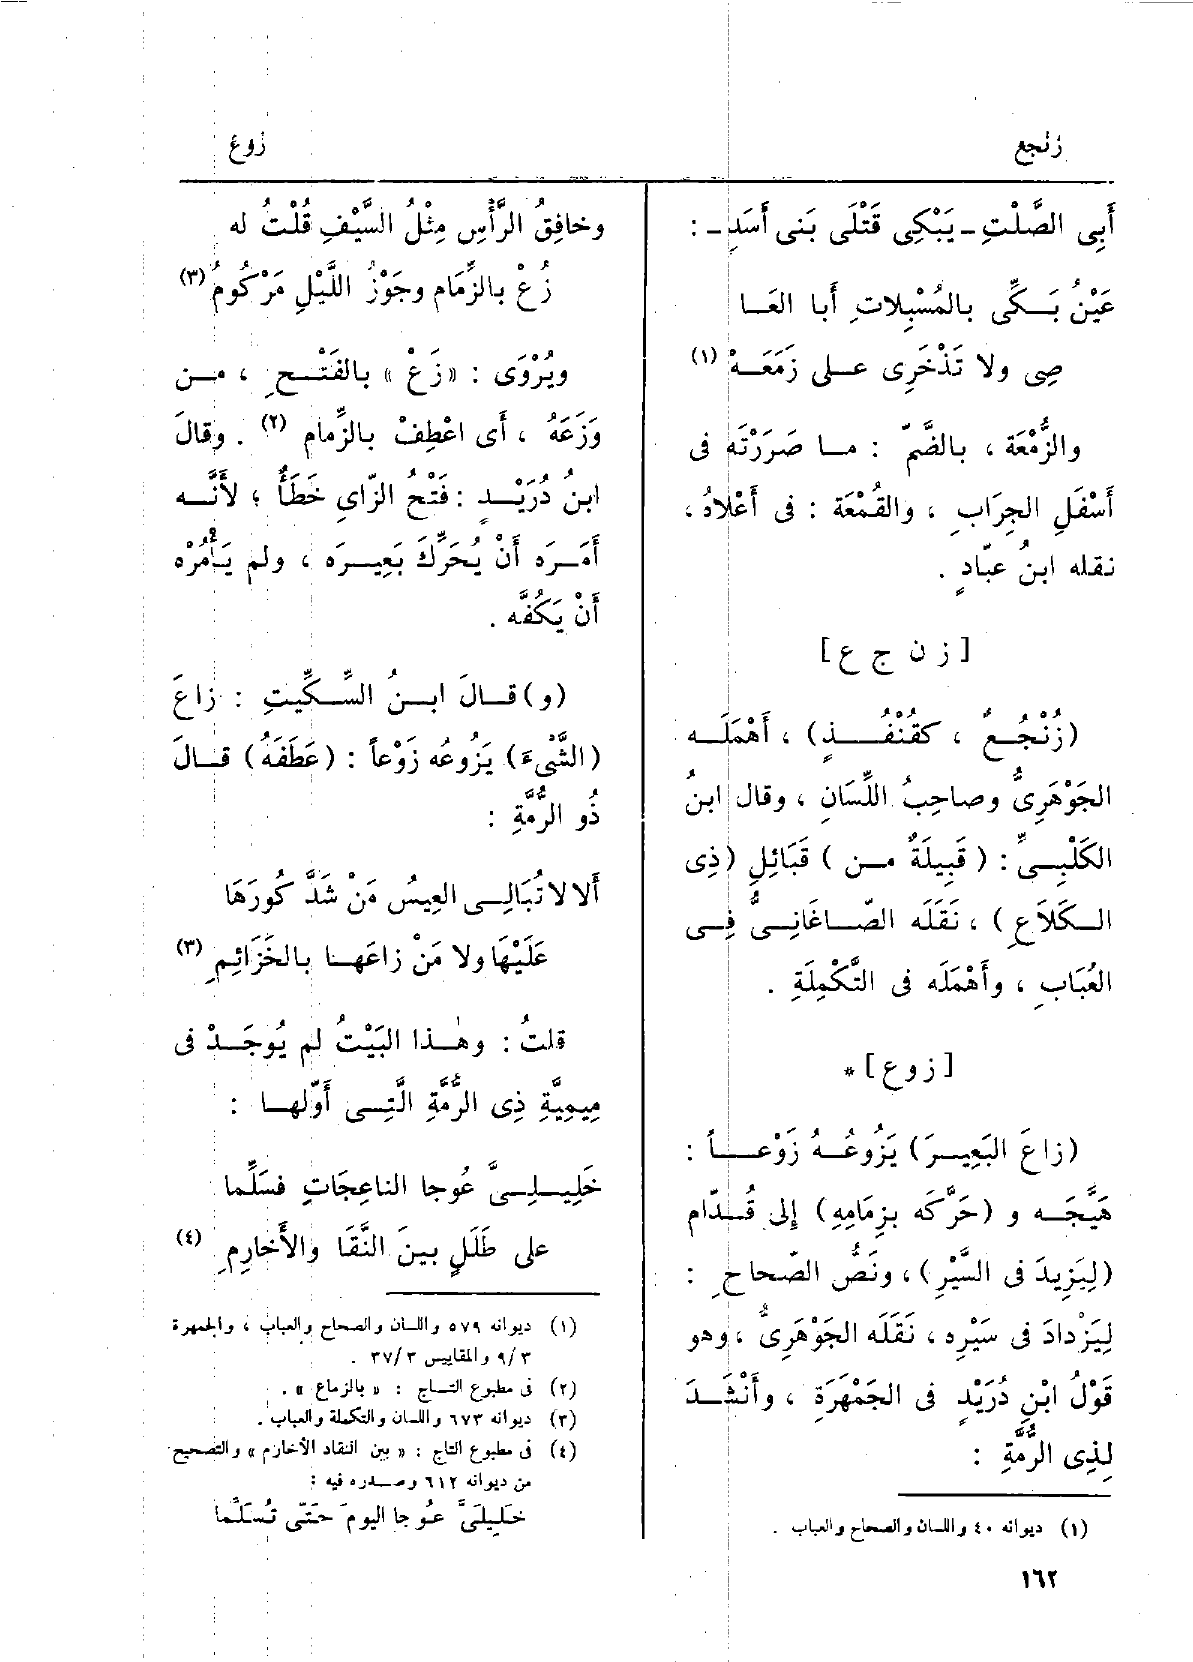 زنجع
زوع
أَبِى الصَّلْتِ ـ يَبْكِى قَتْلَى بَنى أَسَدِ ـ :
عَيْنُ بَـكِّى بالمُسْبِلاتِ أَبا العَـا
صِى ولا تَذْخَرِى عـلى زَمَعَـهْ (١)
والزُّمْعَة ، بالضَّمّ : مـا صَرَرْتَه فى
أَسْفَلِ الجِرَابِ ، والقُمْعَة : فى أَعْلاهُ ،
نقله ابنُ عبّادٍ .
[ ز ن ج ع ]
(زُنْجُـعٌ ، كقُنْفُـذٍ) ، أَهْمَلَـه
الجَوْهَرِىُّ وصاحِبُ اللِّسَانِ ، وقال ابنُ
الكَلْبِـىِّ : ( قَبِيلَةٌ مـن ) قَبَائلِ (ذِى
الـكَلاَعِ ) ، نَقَلَه الصّـاغَانِـىُّ فِـى
العُبَابِ ، وأَهْمَلَه فى التَّكْمِلَةِ .
[ زوع ] *
(زاعَ البَعِيـرَ) يَزُوعُـهُ زَوْعـاً :
هَيَّجَـه و (حَرَّكَه بزِمَامِهِ) إِلى قُـدّام
(لِيَزِيدَ فى السَّيْرِ) ، ونَصُّ الصّحاحِ :
لِيَزْدادَ فى سَيْرِه ، نَقَلَه الجَوْهَرِىُّ ، وهو
قَوْلُ ابْنِ دُرَيْدٍ فى الجَمْهَرَةِ ، وأَنْشَـدَ
لِذِى الرُّمَّةِ :
(١) ديوانه ٤٠ واللسان والصحاح والعباب .
١٦٢
وخافِقُ الرَّأْسِ مِثْلُ السَّيْفِ قُلْتُ له
زُعْ بالزِّمَامِ وجَوْزُ اللَّيْلِ مَرْكُومُ (٣)
ويُرْوَى : «زَعْ» بالفَتْـحِ ، مـن
وَزَعَهُ ، أَى اعْطِفْ بالزِّمام (٢) . وقالَ
ابنُ دُرَيْـدٍ : فَتْحُ الزّايِ خَطَأٌ ؛ لأَنَّـه
أَمَـرَه أَنْ يُحَرِّكَ بَعِيـرَه ، ولم يَأْمُرْه
أَنْ يَكُفَّه .
(و) قـالَ ابـنُ السِّـكِّيتِ : زاعَ
(الشَّىْءَ) يَزُوعُه زَوْعاً : (عَطَفَهُ) قـالَ
ذُو الرُّمَّةِ :
أَلا لا تُبَالِـى العِيسُ مَنْ شَدَّ كُورَهَا
عَلَيْهَا ولا مَنْ زاعَهـا بالخَزَائِمِ (٣)
قلتُ : وهٰـذا البَيْتُ لم يُوجَـدْ فى
مِيمِيَّةِ ذِى الرُّمَّةِ الَّتِـى أَوّلهـا :
خَلِيلِـىَّ عُوجا الناعِجَاتِ فسَلِّما
على طَلَلٍ بينَ النَّقَا والأَخارِمِ (٤)
(١) ديوانه ٥٧٩ واللسان والصحاح والعباب ، والجمهرة
٩/٣ والمقاييس ٣٧/٣ .
(٢) فى مطبوع التـاج : « بالزماع » .
(٣) ديوانه ٦٧٣ واللسان والتكملة والعباب .
(٤) فى مطبوع التاج : « بين النقاد الأخارم » والتصحيح
من ديوانه ٦١٢ وصـدره فيه :
خَلِيلِىَّ عُوجا اليومَ حَتّى تُسَلِّما